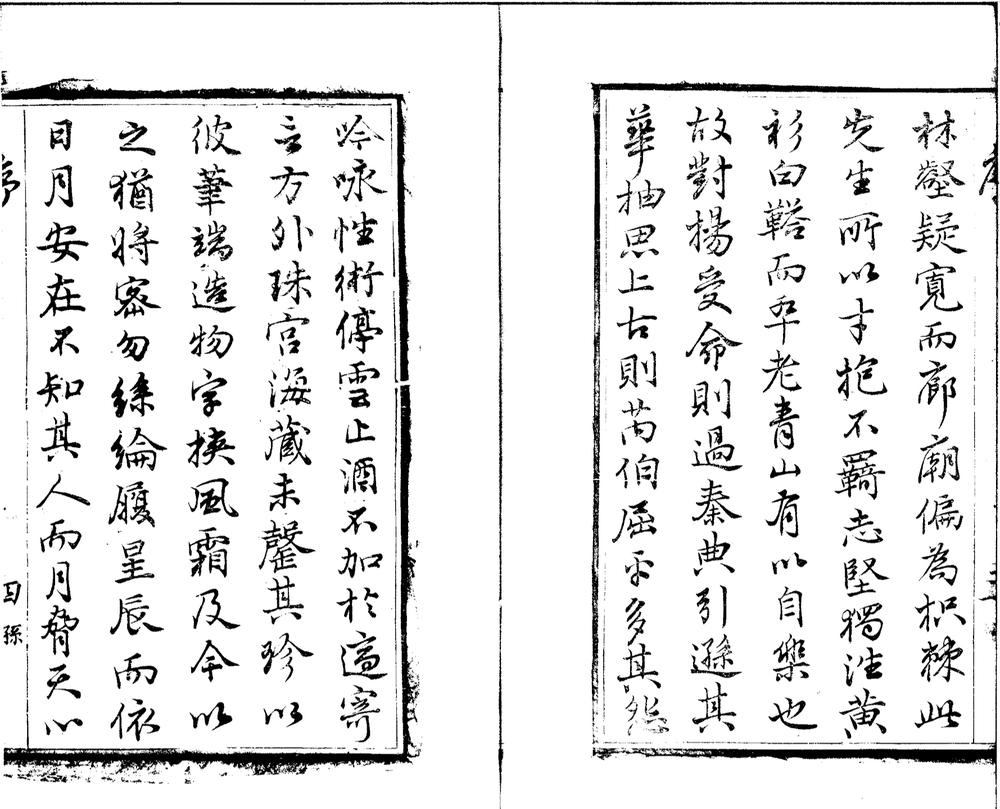 林壑疑寬而廊廟偏為枳棘此
先生所以才抱不羈志堅獨往黃
衫白鞳而卒老青山有以自樂也
故對揚受命則過秦典引遜其
華抽思上古則芮伯屈平多其怨
吟咏性術停雲止酒不加於適寄
言方外珠宮海藏未罄其珍以
彼筆端造物字挾風霜及今以
之猶將密勿絲綸履星辰而依
日月安在不知其人而月脅天心
序